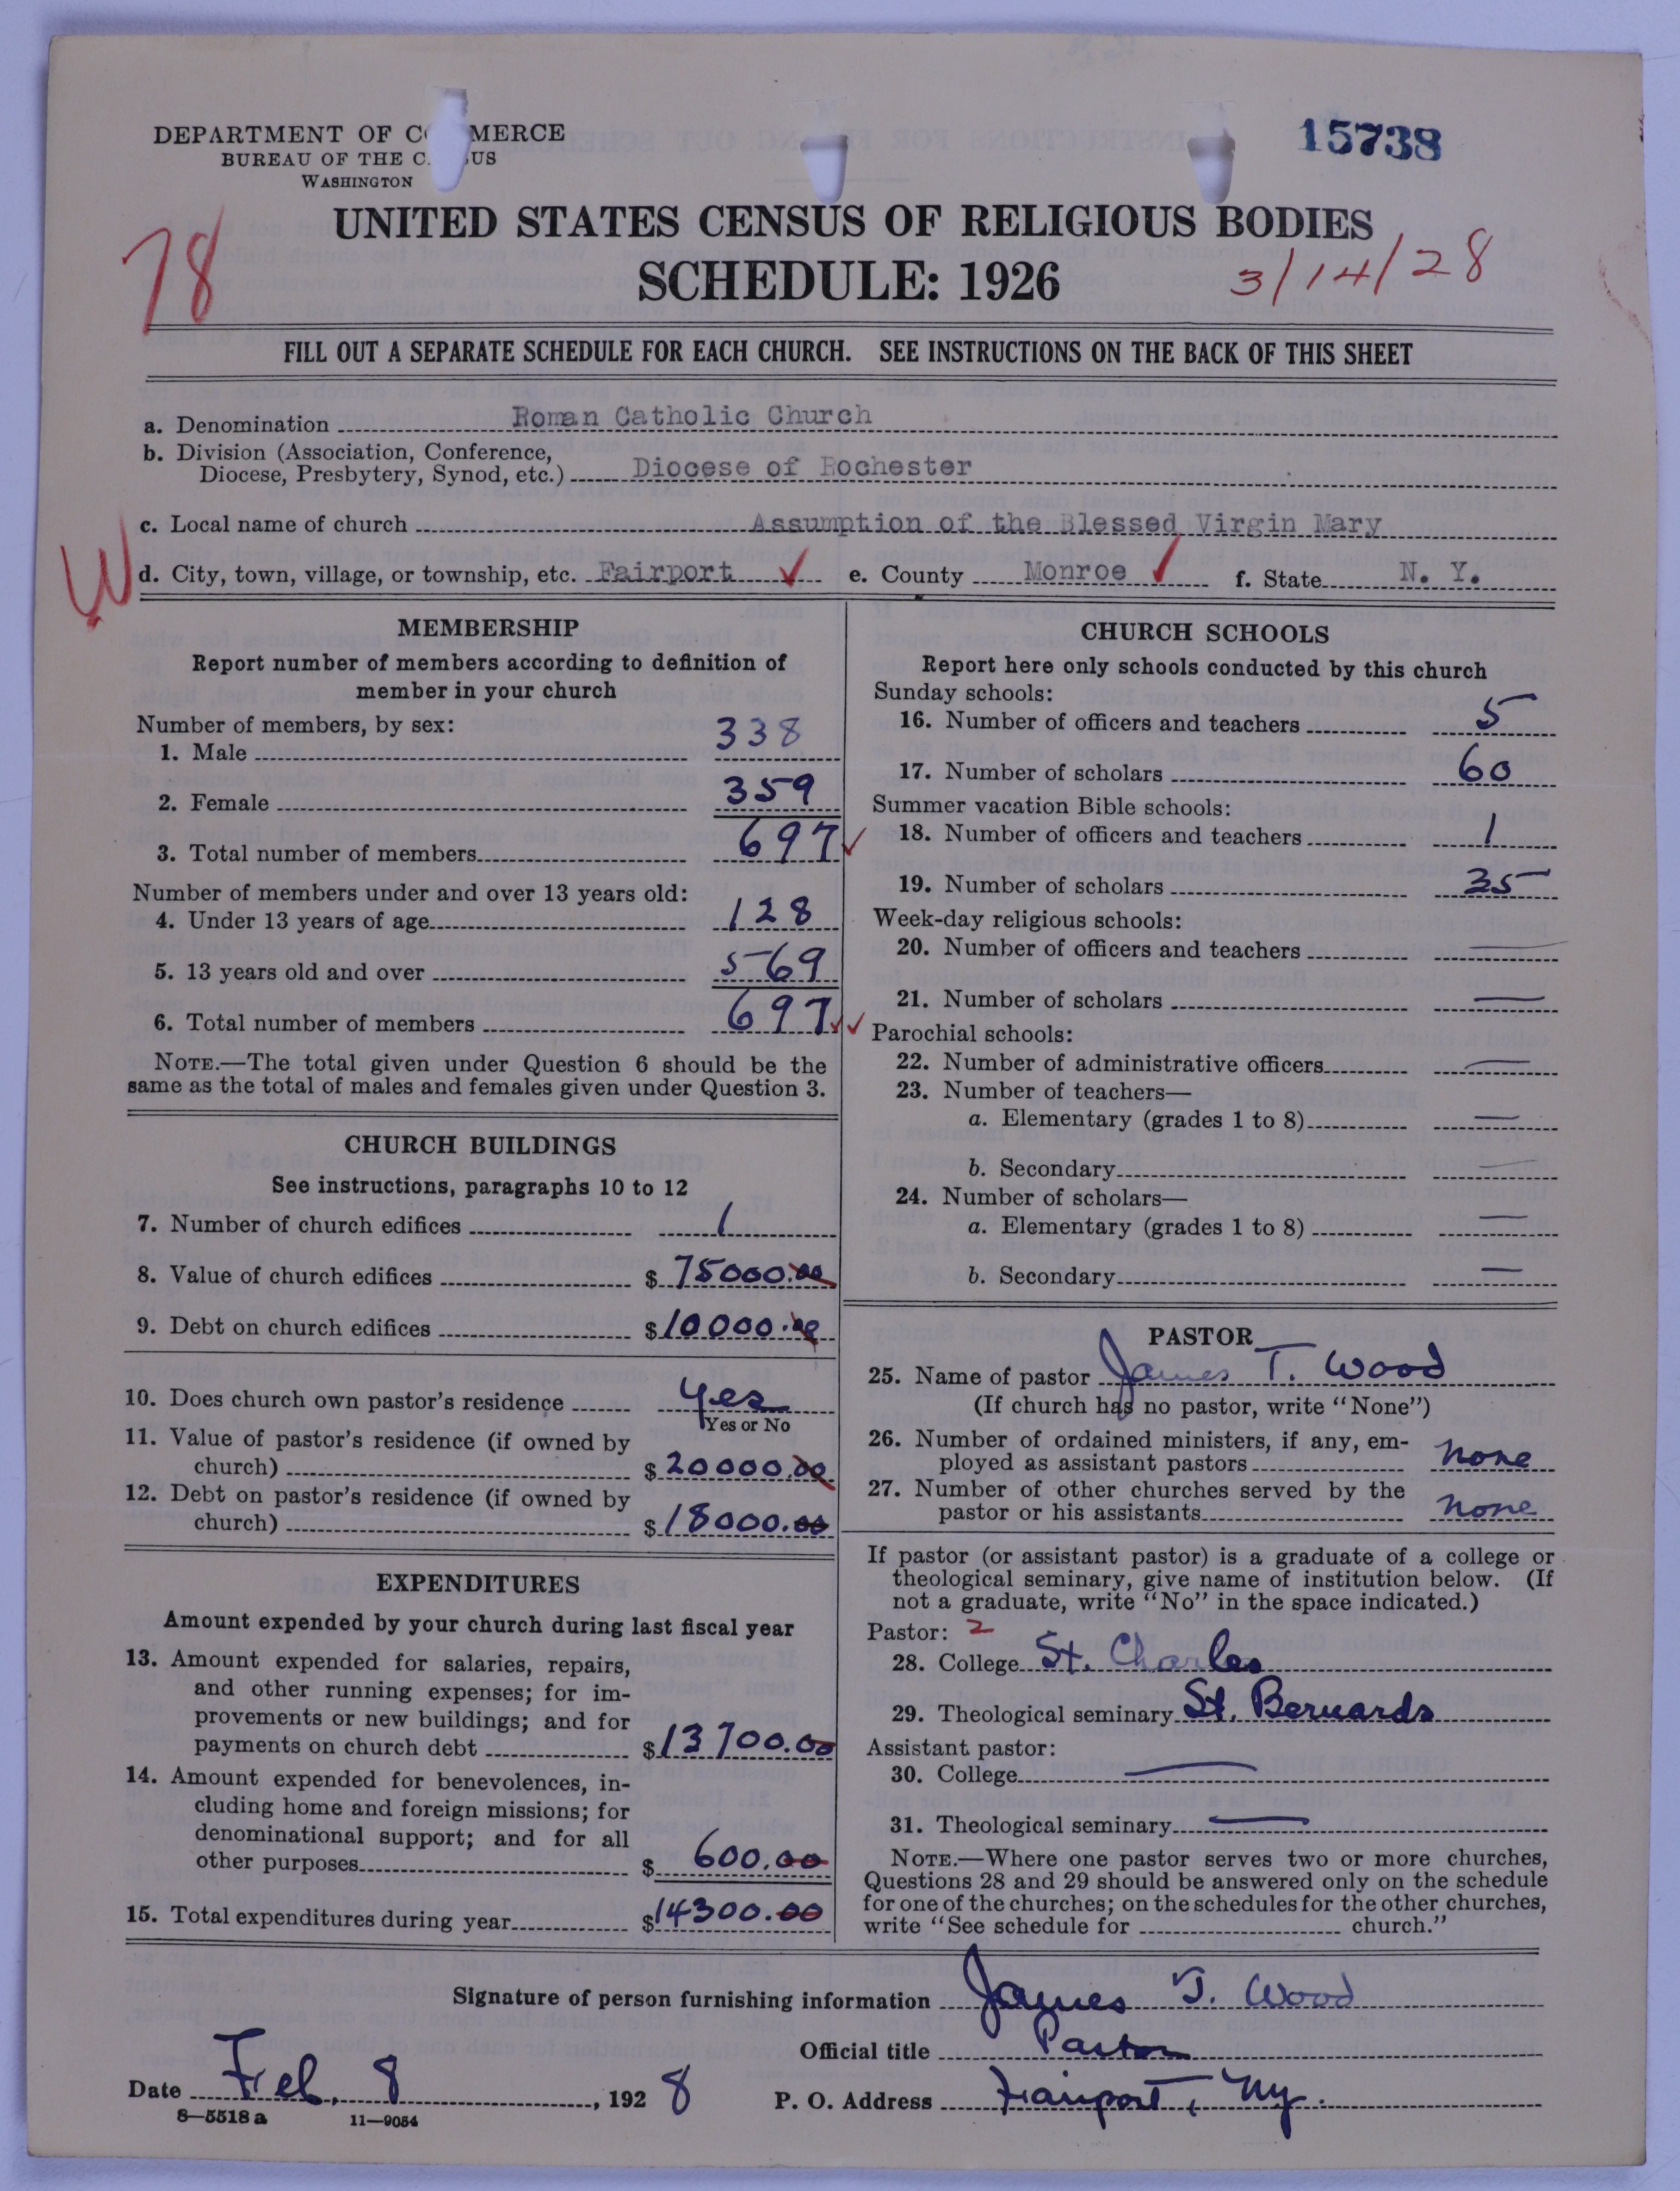 DEPARTMENT OF COMMERCE
BUREAU OF THE CENSUS
WASHINGTON
15738
78
UNITED STATES CENSUS OF RELIGIOUS BODIES
SCHEDULE: 1926
3/14/28
FILL OUT A SEPARATE SCHEDULE FOR EACH CHURCH. SEE INSTRUCTIONS ON THE BACK OF THIS SHEET
a. Denomination Roman Catholic Church
b. Division (Association, Conference,
Diocese, Presbytery, Synod, etc.) Diocese of Rochester
c. Local name of church Assumption of the Blessed Virgin Mary
W
d. City, town, village, or township, etc. Fairport ✓ e. County Monroe ✓ f. State N. Y.
MEMBERSHIP
Report number of members according to definition of
member in your church
Number of members, by sex:
1. Male 338
2. Female 359
3. Total number of members 697 ✓
Number of members under and over 13 years old:
4. Under 13 years of age 128
5. 13 years old and over 569
6. Total number of members 697 ✓✓
NOTE.—The total given under Question 6 should be the
same as the total of males and females given under Question 3.
CHURCH BUILDINGS
See instructions, paragraphs 10 to 12
7. Number of church edifices 1
8. Value of church edifices $ 75000.00
9. Debt on church edifices $ 10000.00
10. Does church own pastor's residence Yes
Yes or No
11. Value of pastor's residence (if owned by
church) $ 20000.00
12. Debt on pastor's residence (if owned by
church) $ 18000.00
EXPENDITURES
Amount expended by your church during last fiscal year
13. Amount expended for salaries, repairs,
and other running expenses; for im-
provements or new buildings; and for
payments on church debt $ 13700.00
14. Amount expended for benevolences, in-
cluding home and foreign missions; for
denominational support; and for all
other purposes $ 600.00
15. Total expenditures during year $ 14300.00
CHURCH SCHOOLS
Report here only schools conducted by this church
Sunday schools:
16. Number of officers and teachers 5
17. Number of scholars 60
Summer vacation Bible schools:
18. Number of officers and teachers 1
19. Number of scholars 35
Week-day religious schools:
20. Number of officers and teachers —
21. Number of scholars —
Parochial schools:
22. Number of administrative officers —
23. Number of teachers—
a. Elementary (grades 1 to 8) —
b. Secondary —
24. Number of scholars—
a. Elementary (grades 1 to 8) —
b. Secondary —
PASTOR
25. Name of pastor James T. Wood
(If church has no pastor, write "None")
26. Number of ordained ministers, if any, em-
ployed as assistant pastors none
27. Number of other churches served by the
pastor or his assistants none
If pastor (or assistant pastor) is a graduate of a college or
theological seminary, give name of institution below. (If
not a graduate, write "No" in the space indicated.)
Pastor: 2
28. College St. Charles
29. Theological seminary St. Bernards
Assistant pastor:
30. College —
31. Theological seminary —
NOTE.—Where one pastor serves two or more churches,
Questions 28 and 29 should be answered only on the schedule
for one of the churches; on the schedules for the other churches,
write "See schedule for church."
Signature of person furnishing information James T. Wood
Official title Pastor
Date Feb. 8, 1928 P. O. Address Fairport, NY.
8—5518 a 11—9054